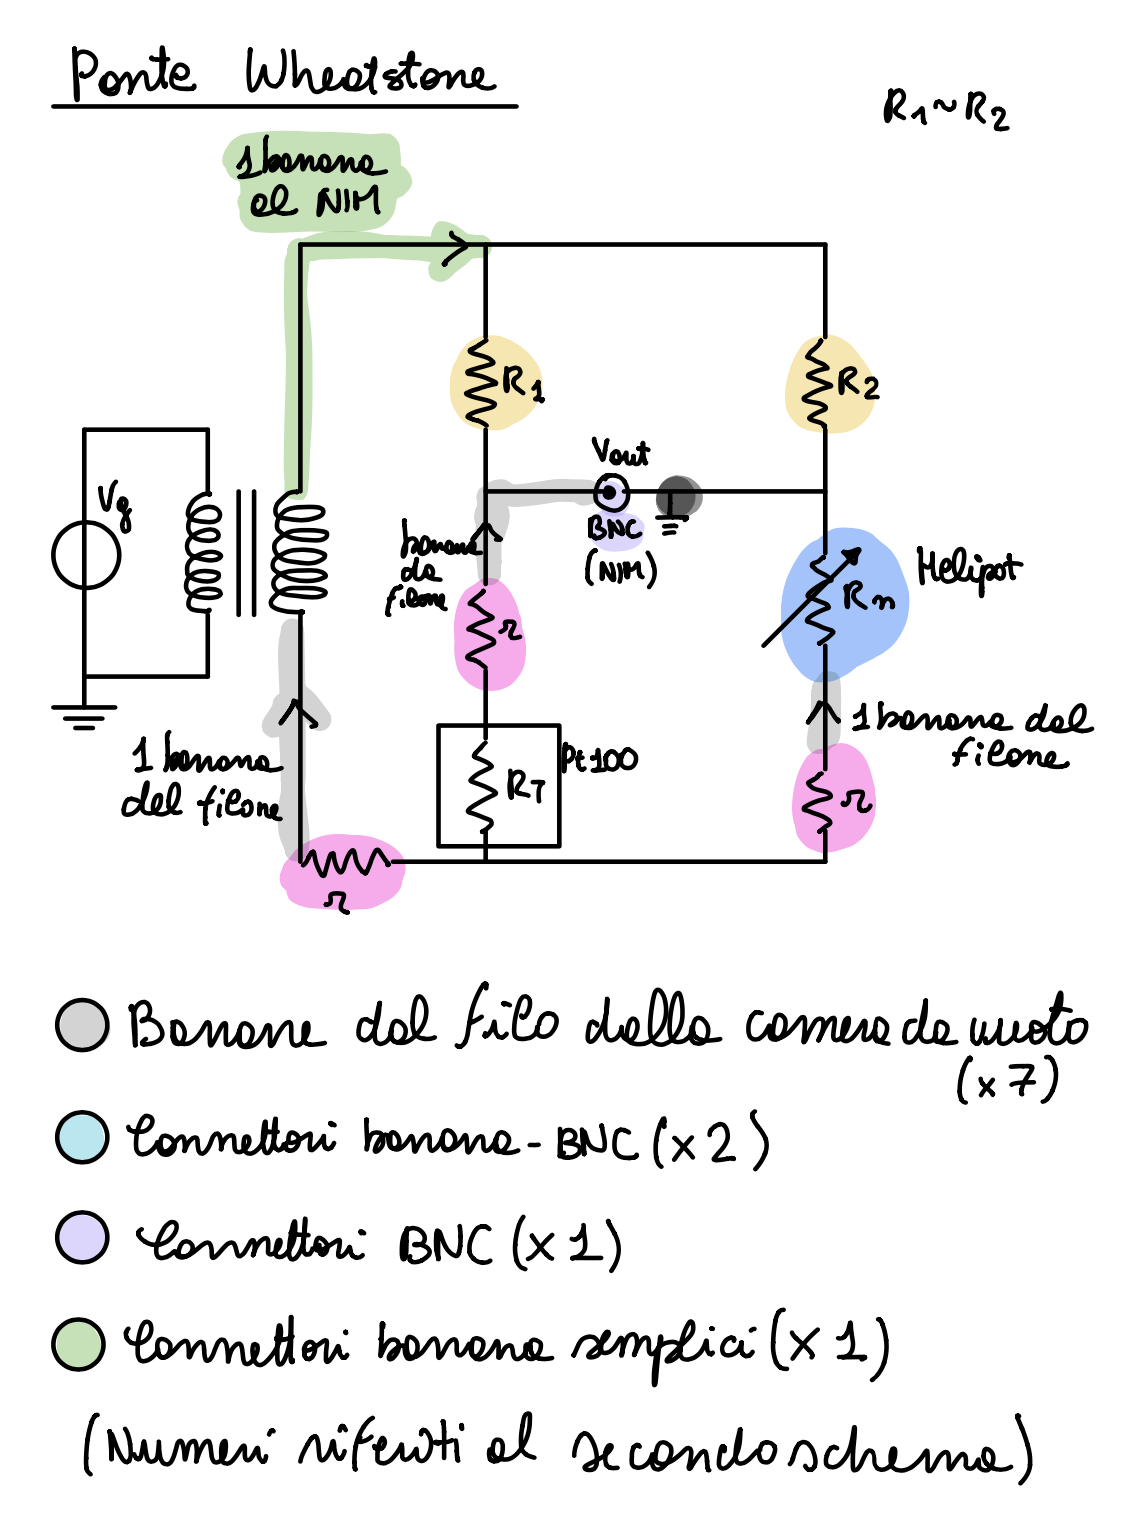 Ponte Wheatstone
R1 ~ R2
1 banana
al NIM
R1
R2
Vout
Vg
BNC
(NIM)
banana
da
filone
Helipot
Rn
r
1 banana dal
filone
1 banana
del filone
Pt100
RT
r
r
Banane dal filo della camera da vuoto
(x 7)
Connettori banana - BNC (x 2)
Connettori BNC (x 1)
Connettori banana semplici (x 1)
(Numeri riferiti al secondo schema)